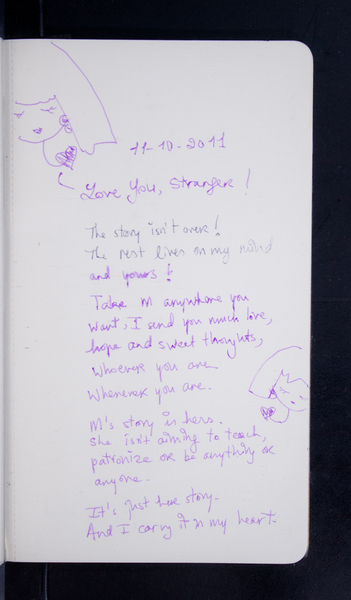 11-10-2011
Love You, Stranger!
The story isn't over!
The rest lives on my mind
and yours!
Take M anywhere you
want, I send you much love,
hope and sweet thoughts,
Whoever you are
Whenever you are.
M's story is hers.
She isn't aiming to teach,
patronize or be anything or
anyone.
It's just her story.
And I carry it in my heart.